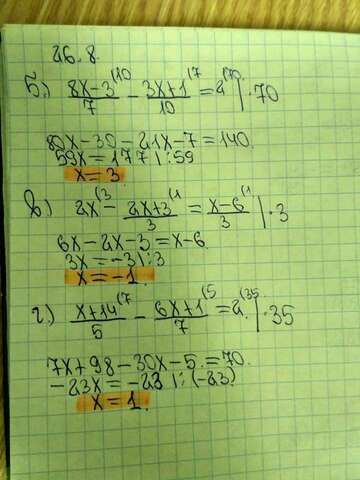 26.8.
б.) (8x-3)/7^(10 - (3x+1)/10^(7 = 2^(70 | ·70
80x-30-21x-7=140
59x=177 | :59
x=3.
в) 2x^(3 - (2x+3)/3^(1 = (x-6)/3^(1 | ·3
6x-2x-3=x-6
3x=-3 | :3
x=-1.
г.) (x+14)/5^(7 - (6x+1)/7^(5 = 2^(35 | ·35
7x+98-30x-5=70.
-23x=-23 | :(-23)
x=1.